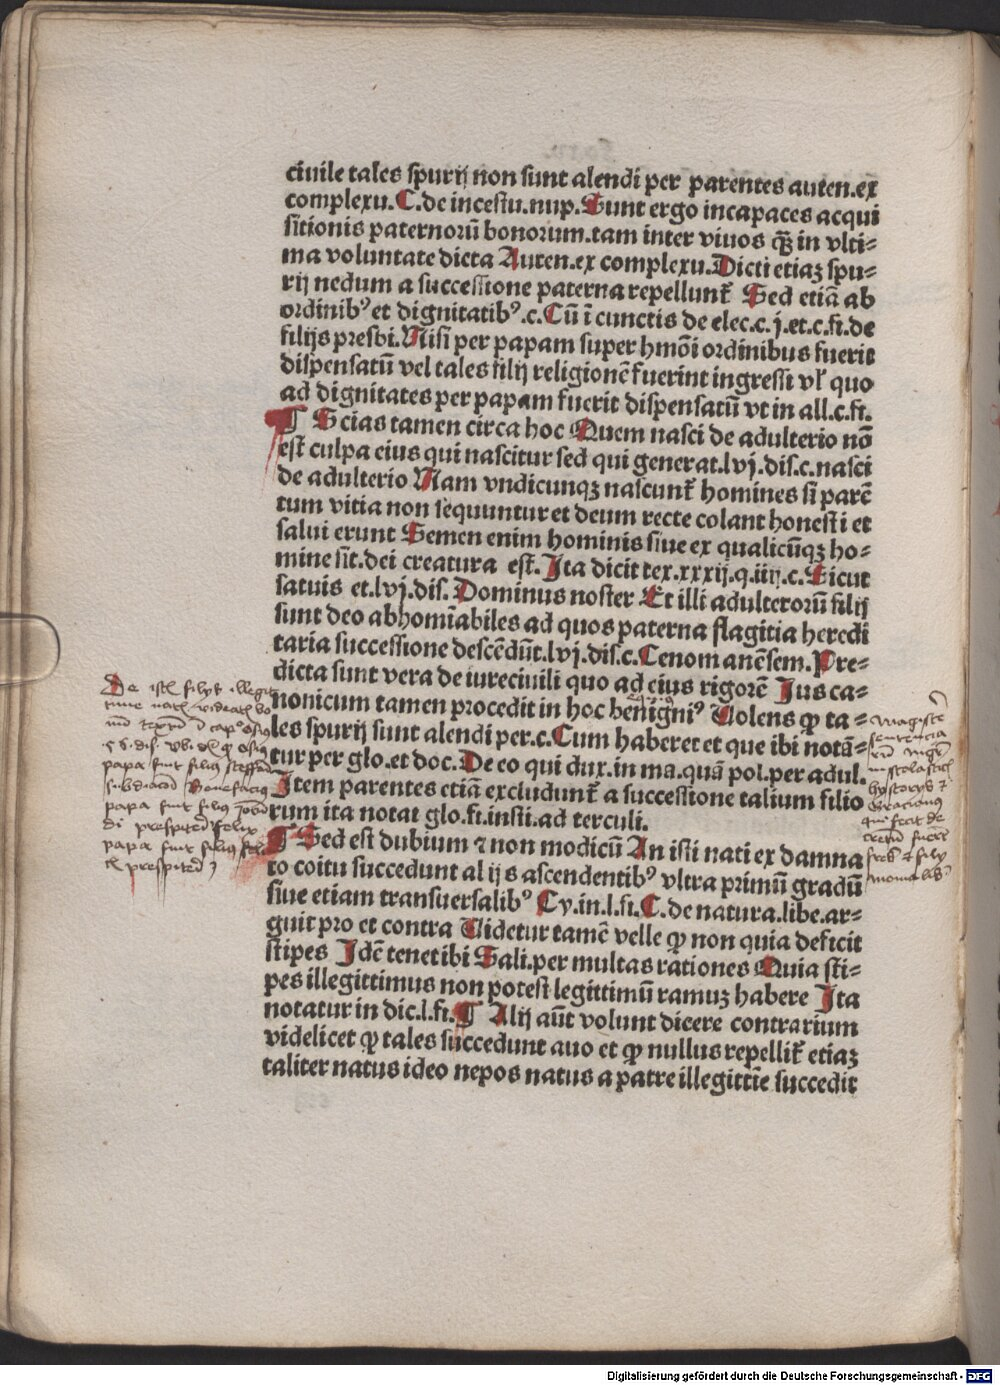 ciuile tales spurij non sunt alendi per parentes auten.ex
complexu.C.de incestu.nup.Sunt ergo incapaces acqui
sitionis paternorū bonorum.tam inter viuos qꝫ in vlti⸗
ma voluntate dicta Auten.ex complexu.Dicti etiaꝫ spu⸗
rij nedum a successione paterna repellunt᷑ Sed etiā ab
ordinibꝰ et dignitatibꝰ.c.Cū ī cunctis de elec.c.j.et.c.fi.de
filijs presbi.Nisi per papam super hmōi ordinibus fuerit
dispensatū vel tales filij religionē fuerint ingressi vl' quo
ad dignitates per papam fuerit dispensatū vt in all.c.fi.
¶ Scias tamen circa hoc Quem nasci de adulterio nō
est culpa eius qui nascitur sed qui generat.lvj.dis.c.nasci
de adulterio Nam vndicunqꝫ nascunt᷑ homines si parē
tum vitia non sequuntur et deum recte colant honesti et
salui erunt Semen enim hominis siue ex qualicūqꝫ ho⸗
mine sit.dei creatura est.Ita dicit tex.xxxij.q.iiij.c.Sicut
satuis et.lvj.dis.Dominus noster Et illi adulterorū filij
sunt deo abhomīabiles ad quos paterna flagitia heredi
taria successione descēdūt.lvj.dis.c.Cenomanēsem.Pre⸗
dicta sunt vera de iureciuili quo ad eius rigorē Jus ca⸗
nonicum tamen procedit in hoc benigniꝰ Uolens ꝙ ta⸗
les spurij sunt alendi per.c.Cum haberet et que ibi notā⸗
tur per glo.et doc.De eo qui dux.in ma.quā pol.per adul.
Item parentes etiā excludunt᷑ a successione talium filio
rum ita notat glo.fi.insti.ad terculi.
¶ Sed est dubium ⁊ non modicū An isti nati ex damna
to coitu succedunt alijs ascendentibꝰ vltra primū gradū
siue etiam transuersalibꝰ Cy.in.l.fi.C.de natura.libe.ar⸗
guit pro et contra Uidetur tamē velle ꝙ non quia deficit
stipes Idē tenet ibi Sali.per multas rationes Quia sti⸗
pes illegittimus non potest legittimū ramuꝫ habere Ita
notatur in dic.l.fi.¶ Alij aūt volunt dicere contrarium
videlicet ꝙ tales succedunt auo et ꝙ nullus repellit᷑ etiaꝫ
taliter natus ideo nepos natus a patre illegittīe succedit
De istis filijs illegit
papa fuit filius
subdiaconi Bonefacius
papa fuit filius
di prespiteri felix
papa fuit filius
prespiteri
Magister
sententia
scolastic
hystorys ⁊
Gracianus
qui fecit de
cretū fuerūt
Digitalisierung gefördert durch die Deutsche Forschungsgemeinschaft - DFG